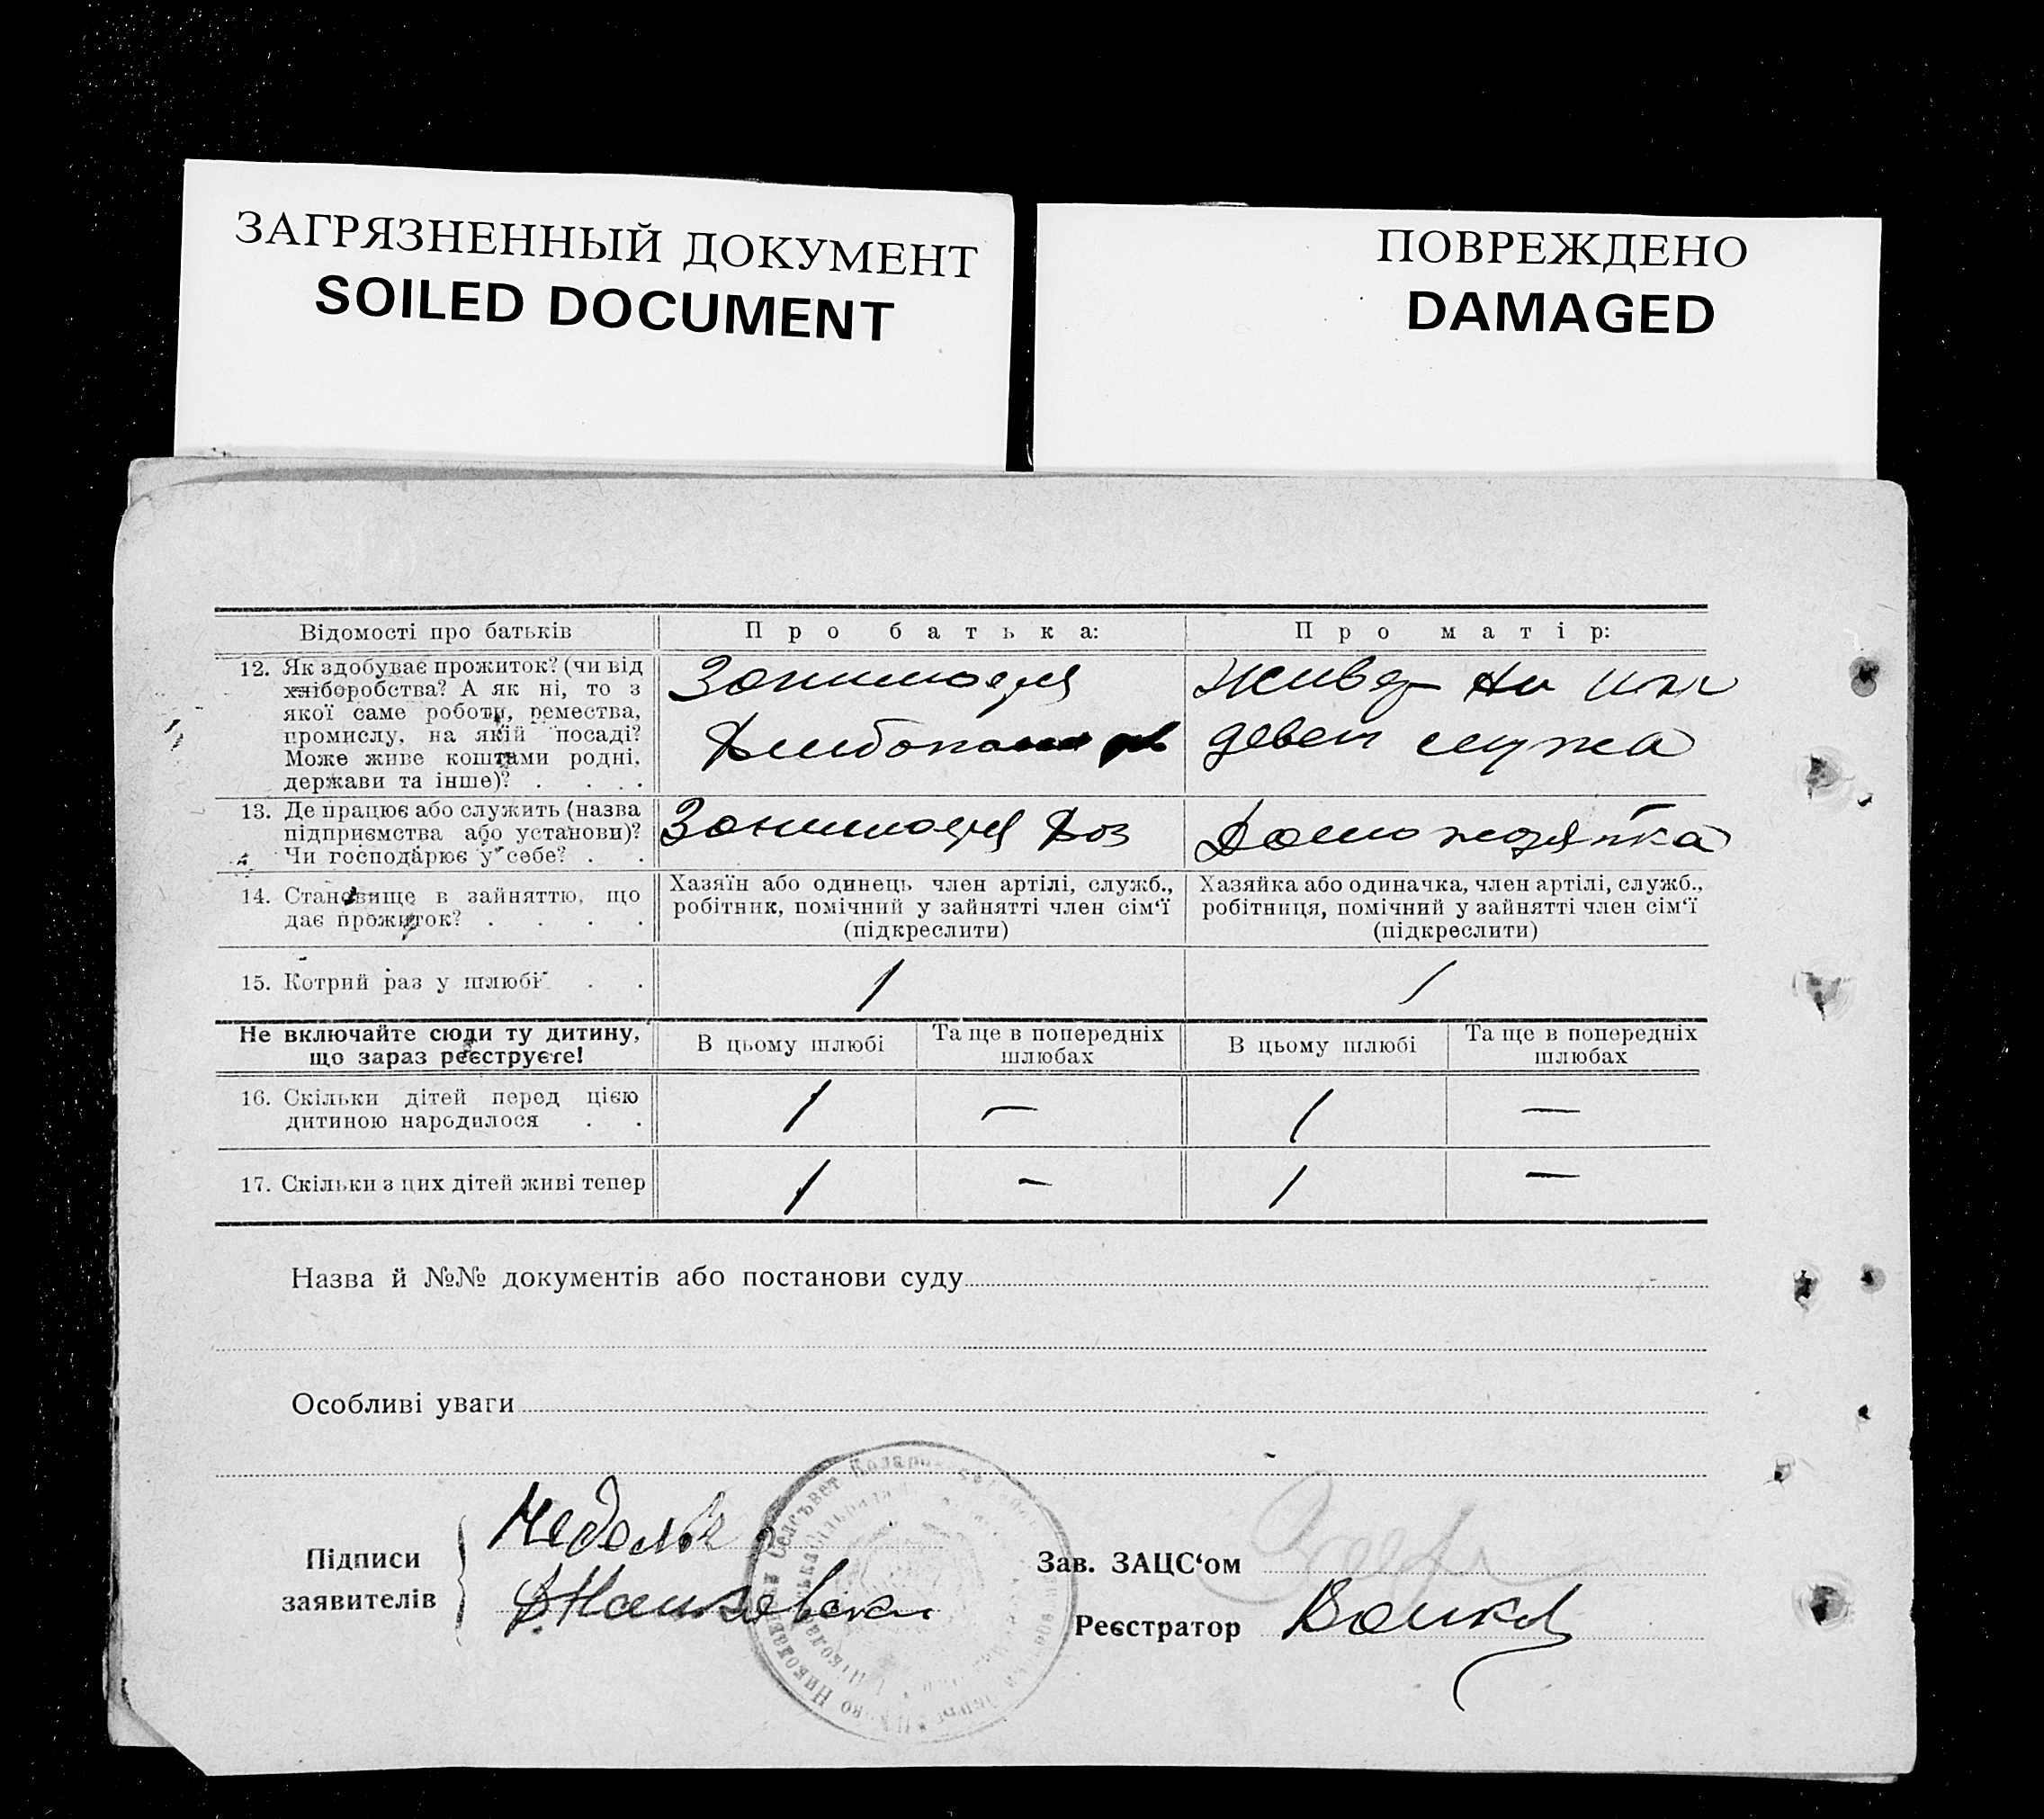 ЗАГРЯЗНЕННЫЙ ДОКУМЕНТ
SOILED DOCUMENT
ПОВРЕЖДЕНО
DAMAGED
Відомості про батьків
Про батька:
Про матір:
12. Як здобуває прожиток? (чи від
хліборобства? А як ні, то з
якої саме роботи, ремества,
промислу, на якій посаді?
Може живе коштами родні,
держави та інше)? . . . .
Живе на
мужа
13. Де працює або служить (назва
підприємства або установи)?
Чи господарює у себе? . .
14. Становище в зайняттю, що
дає прожиток? . . . .
Хазяїн або одинець член артілі, служб.,
робітник, помічний у зайнятті член сім‘ї
(підкреслити)
Хазяйка або одиначка, член артілі, служб.,
робітниця, помічний у зайнятті член сім‘ї
(підкреслити)
15. Котрий раз у шлюбі . .
1
1
Не включайте сюди ту дитину,
що зараз реєструєте!
В цьому шлюбі
Та ще в попередніх
шлюбах
В цьому шлюбі
Та ще в попередніх
шлюбах
16. Скільки дітей перед цією
дитиною народилося . .
1
—
1
—
17. Скільки з цих дітей живі тепер
1
—
1
—
Назва й №№ документів або постанови суду
Особливі уваги
Підписи
заявителів
Зав. ЗАЦС‘ом
Реєстратор